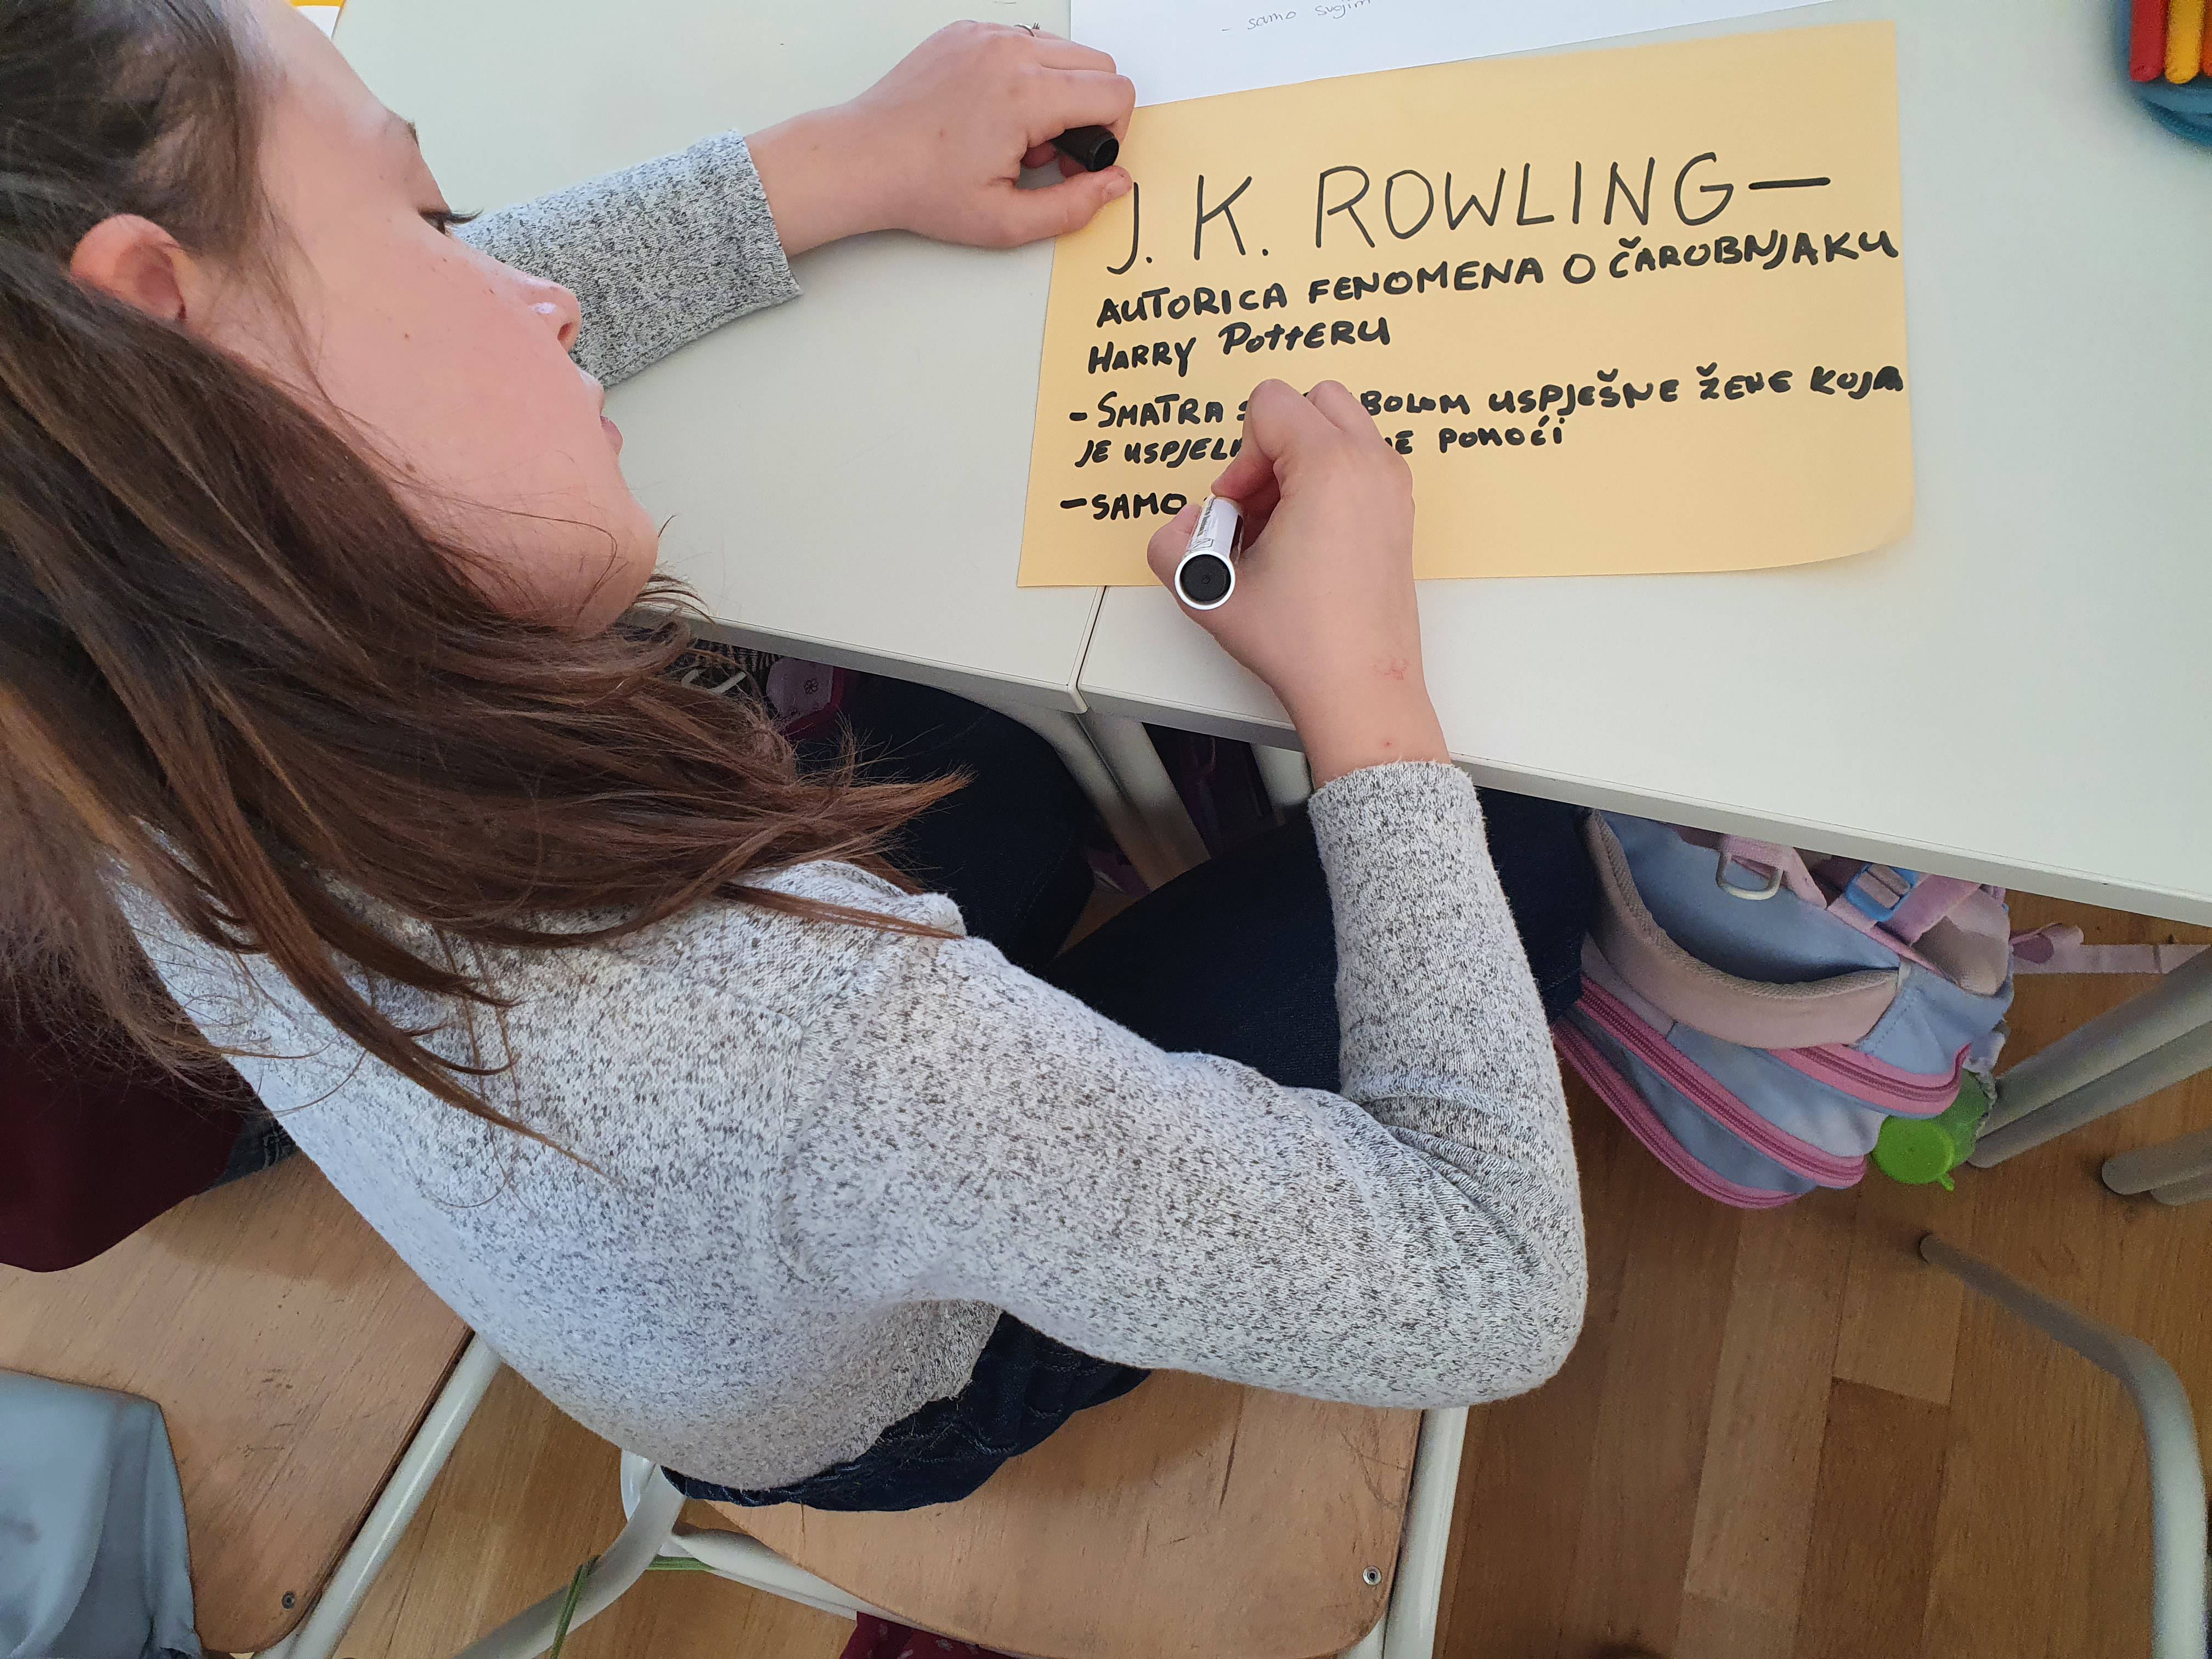 - samo svojim
J. K. ROWLING—
AUTORICA FENOMENA O ČAROBNJAKU
HARRY POTTERU
- SMATRA USPJEŠNE ŽENE KOJA
JE POMOĆI
- SAMO